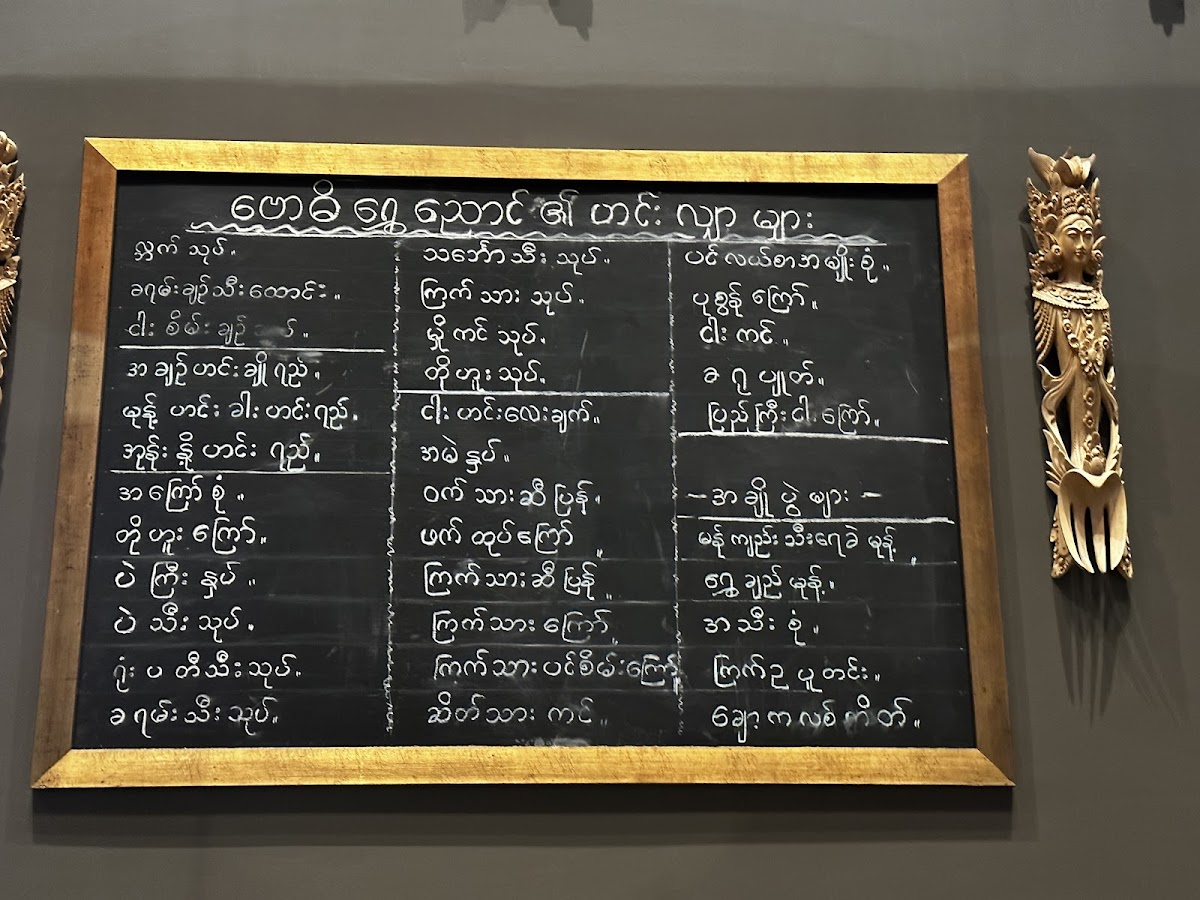 ဗောဓိ ရွှေညောင်၏ ဟင်းလျှာများ
လ္ဘက်သုပ်။
ခရမ်းချဉ်သီးထောင်း။
ငါးစိမ်းချဉ်
အချဉ်ဟင်းချိုရည်။
မုန့်ဟင်းခါးဟင်းရည်။
အုန်းနို့ဟင်းရည်။
အကြော်စုံ။
တိုဟူးကြော်။
ပဲကြီးနှပ်။
ပဲသီးသုပ်။
ရုံးပတီသီးသုပ်။
ခရမ်းသီးသုပ်။
သင်္ဘောသီးသုပ်။
ကြက်သားသုပ်။
မှိုကင်သုပ်။
တိုဟူးသုပ်။
ငါးဟင်းလေးချက်။
အမဲနှပ်။
ဝက်သားဆီပြန်။
ဖက်ထုပ်ကြော်။
ကြက်သားဆီပြန်။
ကြက်သားကြော်။
ကြက်သားပင်စိမ်းကြော်။
ဆိတ်သားကင်။
ပင်လယ်စာအမျိုးစုံ။
ပုစွန်ကြော်။
ငါးကင်။
ခရုပျုတ်။
ပြည်ကြီးငါးကြော်။
-အချိုပွဲများ-
မန်ကျည်းသီးရေခဲမုန့်။
ရွှေချည်မုန့်။
အသီးစုံ။
ကြက်ဥပူတင်း။
ချော့ကလစ်ကိတ်။